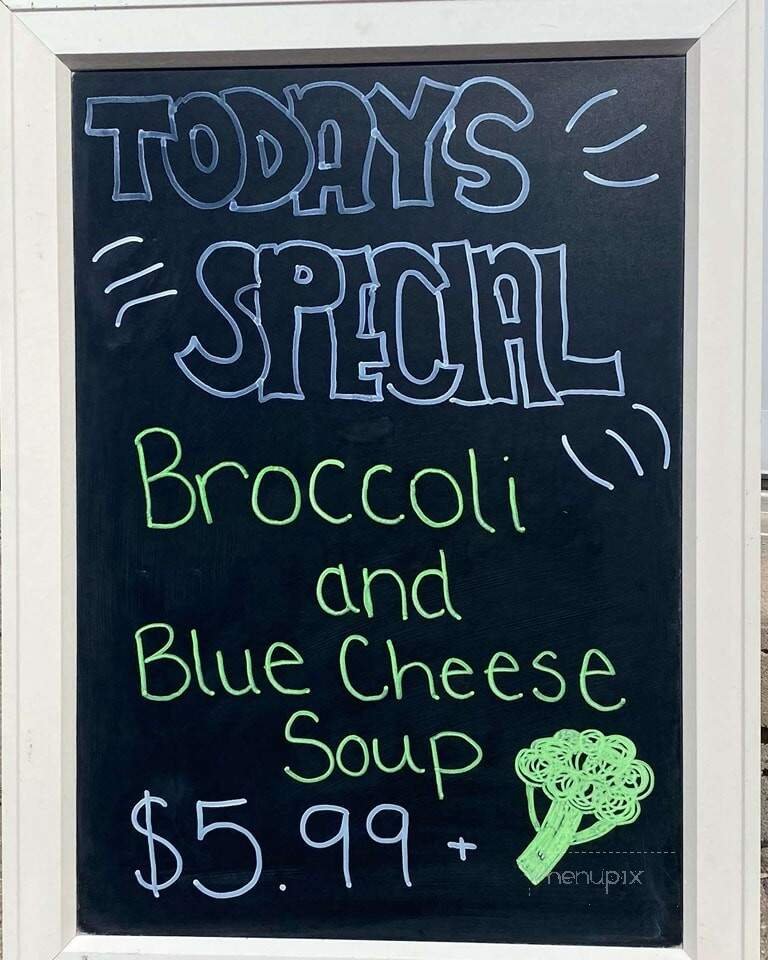 TODAYS
SPECIAL
Broccoli
and
Blue Cheese
Soup
$5.99+
menupix